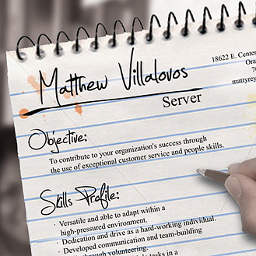 Matthew Villalovos
18622 E. Center
Server
Objective:
To contribute to your organization's success through
the use of exceptional customer service and people skills.
Skills Profile:
· Versatile and able to adapt within a
high-pressured environment.
· Dedication and drive as a hard-working individual.
· Developed communication and team-building
through volunteering.